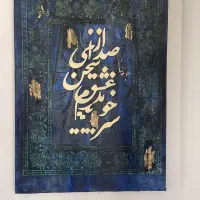 از صدای
سخن
عشق
ندیدم
خوشتر